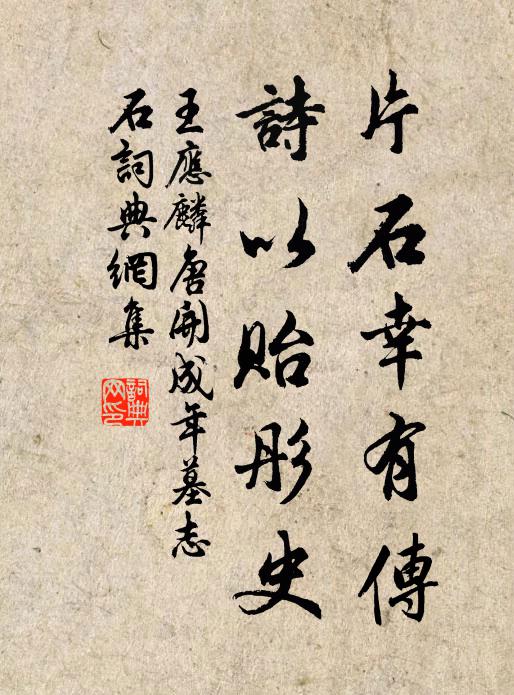 片石幸有傳
詩以貽彤史
王應麟唐開成年墓志
石詞典網集
詞典網印